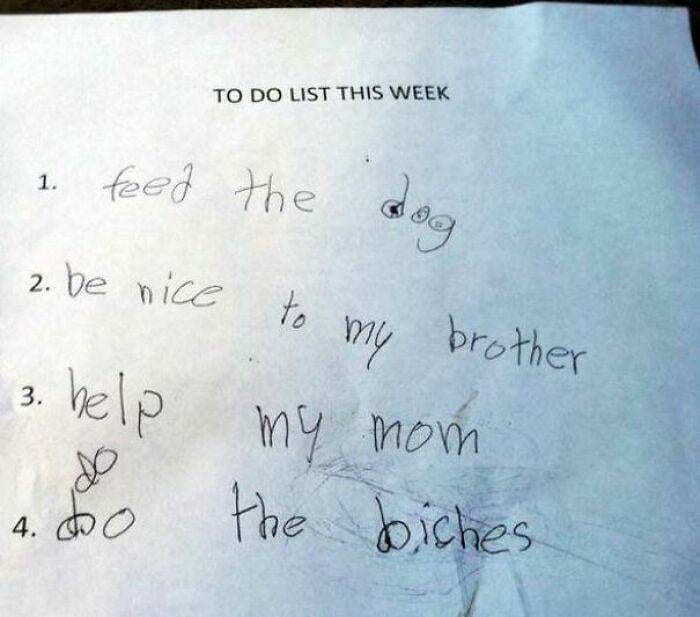 TO DO LIST THIS WEEK
1. feed the dog
2. be nice to my brother
3. help my mom
do
4. do the biches